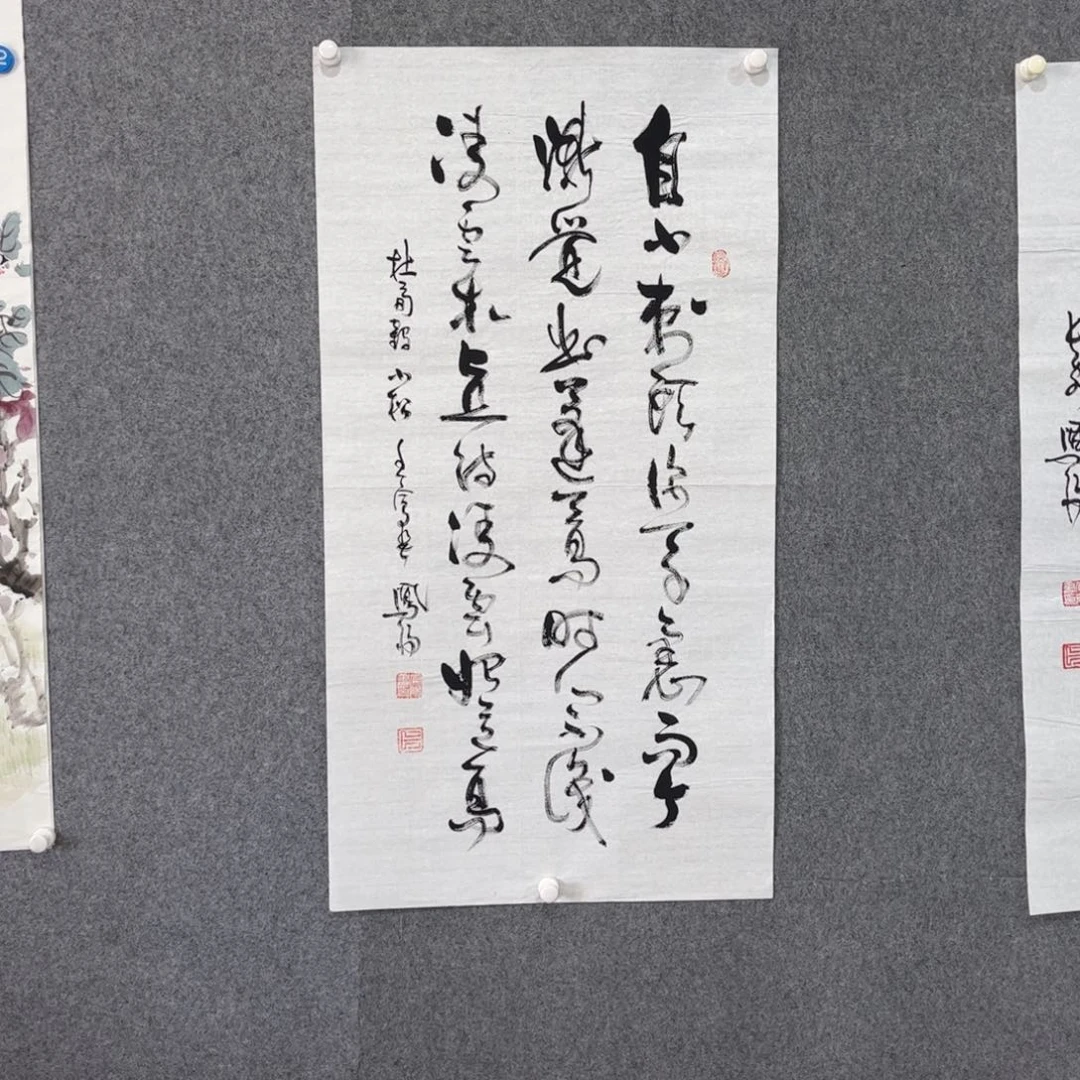 自小刺頭深草裏而今
漸覺出蓬蒿時人不識
凌雲木直待凌雲始道高
杜荀鶴 小松 壬寅 鳳